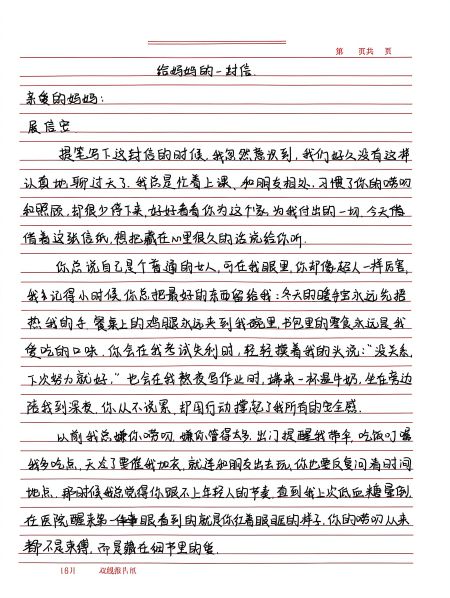 第 页共 页
给妈妈的一封信.
亲爱的妈妈:
展信安
提笔写下这封信的时候,我忽然意识到,我们好久没有这样
认真地聊过天了.我总是忙着上课、和朋友相处,习惯了你的唠叨
和照顾,却很少停下来,好好看看你为这个家,为我付出的一切.今天借
借着这张信纸,想把藏在心里很久的话说给你听.
你总说自己是个普通的女人,可在我眼里,你却像超人一样厉害,
我记得小时候,你总把最好的东西留给我:冬天的暖手宝永远先捂
热我的手,餐桌上的鸡腿永远夹到我碗里,书包里的零食永远是我
爱吃的口味.你会在我考试失利时,轻轻摸着我的头说:"没关系,
下次努力就好,"也会在我熬夜写作业时,端来一杯温牛奶,坐在旁边
陪我到深夜.你从不说累,却用行动撑起了我所有的安全感.
以前我总嫌你唠叨,嫌你管得太多.出门提醒我带伞,吃饭叮嘱
我多吃点,天冷了要催我加衣,就连和朋友出去玩,你也要反复问着时间
地点.那时候我总觉得你跟不上年轻人的节奏.直到我上次低血糖晕倒
在医院,醒来第一眼看到的就是你红着眼眶的样子,你的唠叨从来
都不是束缚,而是藏在细节里的爱.
16开 双线报告纸